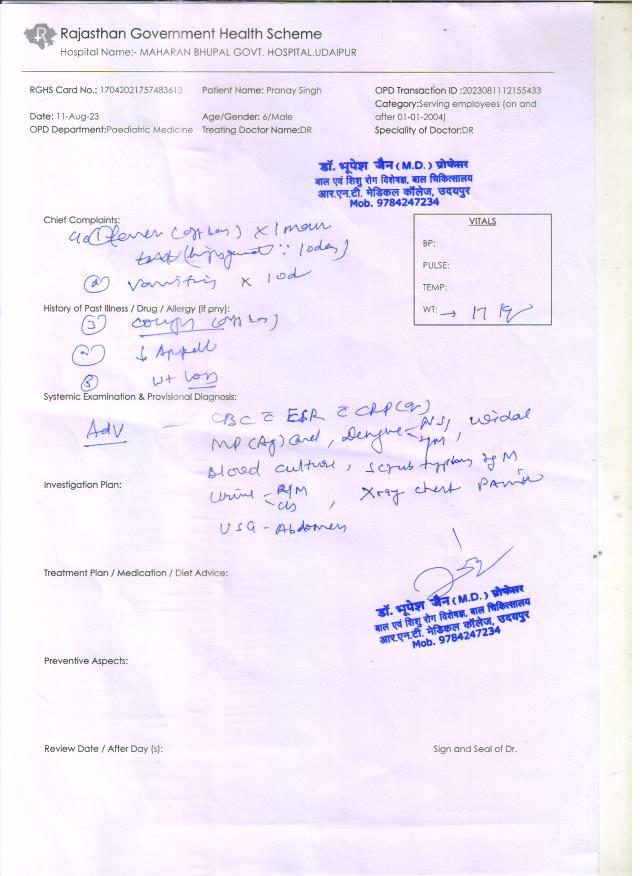 Rajasthan Government Health Scheme
Hospital Name:- MAHARAN BHUPAL GOVT. HOSPITAL,UDAIPUR
RGHS Card No.: 17042021757483613
Patient Name: Pranay Singh
OPD Transaction ID :2023081112155433
Category:Serving employees (on and
after 01-01-2004)
Date: 11-Aug-23
Age/Gender: 6/Male
OPD Department:Paediatric Medicine
Treating Doctor Name:DR
Speciality of Doctor:DR
डॉ. भूपेश जैन (M.D.) प्रोफेसर
बाल एवं शिशु रोग विशेषज्ञ, बाल चिकित्सालय
आर.एन.टी. मेडिकल कॉलेज, उदयपुर
Mob. 9784247234
Chief Complaints:
fever x 1
10days)
vomiting x 10d
VITALS
BP:
PULSE:
TEMP:
WT: → 17 kg
History of Past Illness / Drug / Allergy (if pny):
cough
(2) ↓ Appetite
wt loss
Systemic Examination & Provisional Diagnosis:
Adv — CBC c ESR c CRP
MP (Ag) Card, Dengue - NS1, IgM, widal
Blood culture, scrub typhus IgM
Investigation Plan:
Urine - R/M c/s, Xray chest PA view
USG - Abdomen
Treatment Plan / Medication / Diet Advice:
डॉ. भूपेश जैन (M.D.) प्रोफेसर
बाल एवं शिशु रोग विशेषज्ञ, बाल चिकित्सालय
आर.एन.टी. मेडिकल कॉलेज, उदयपुर
Mob. 9784247234
Preventive Aspects:
Review Date / After Day (s):
Sign and Seal of Dr.